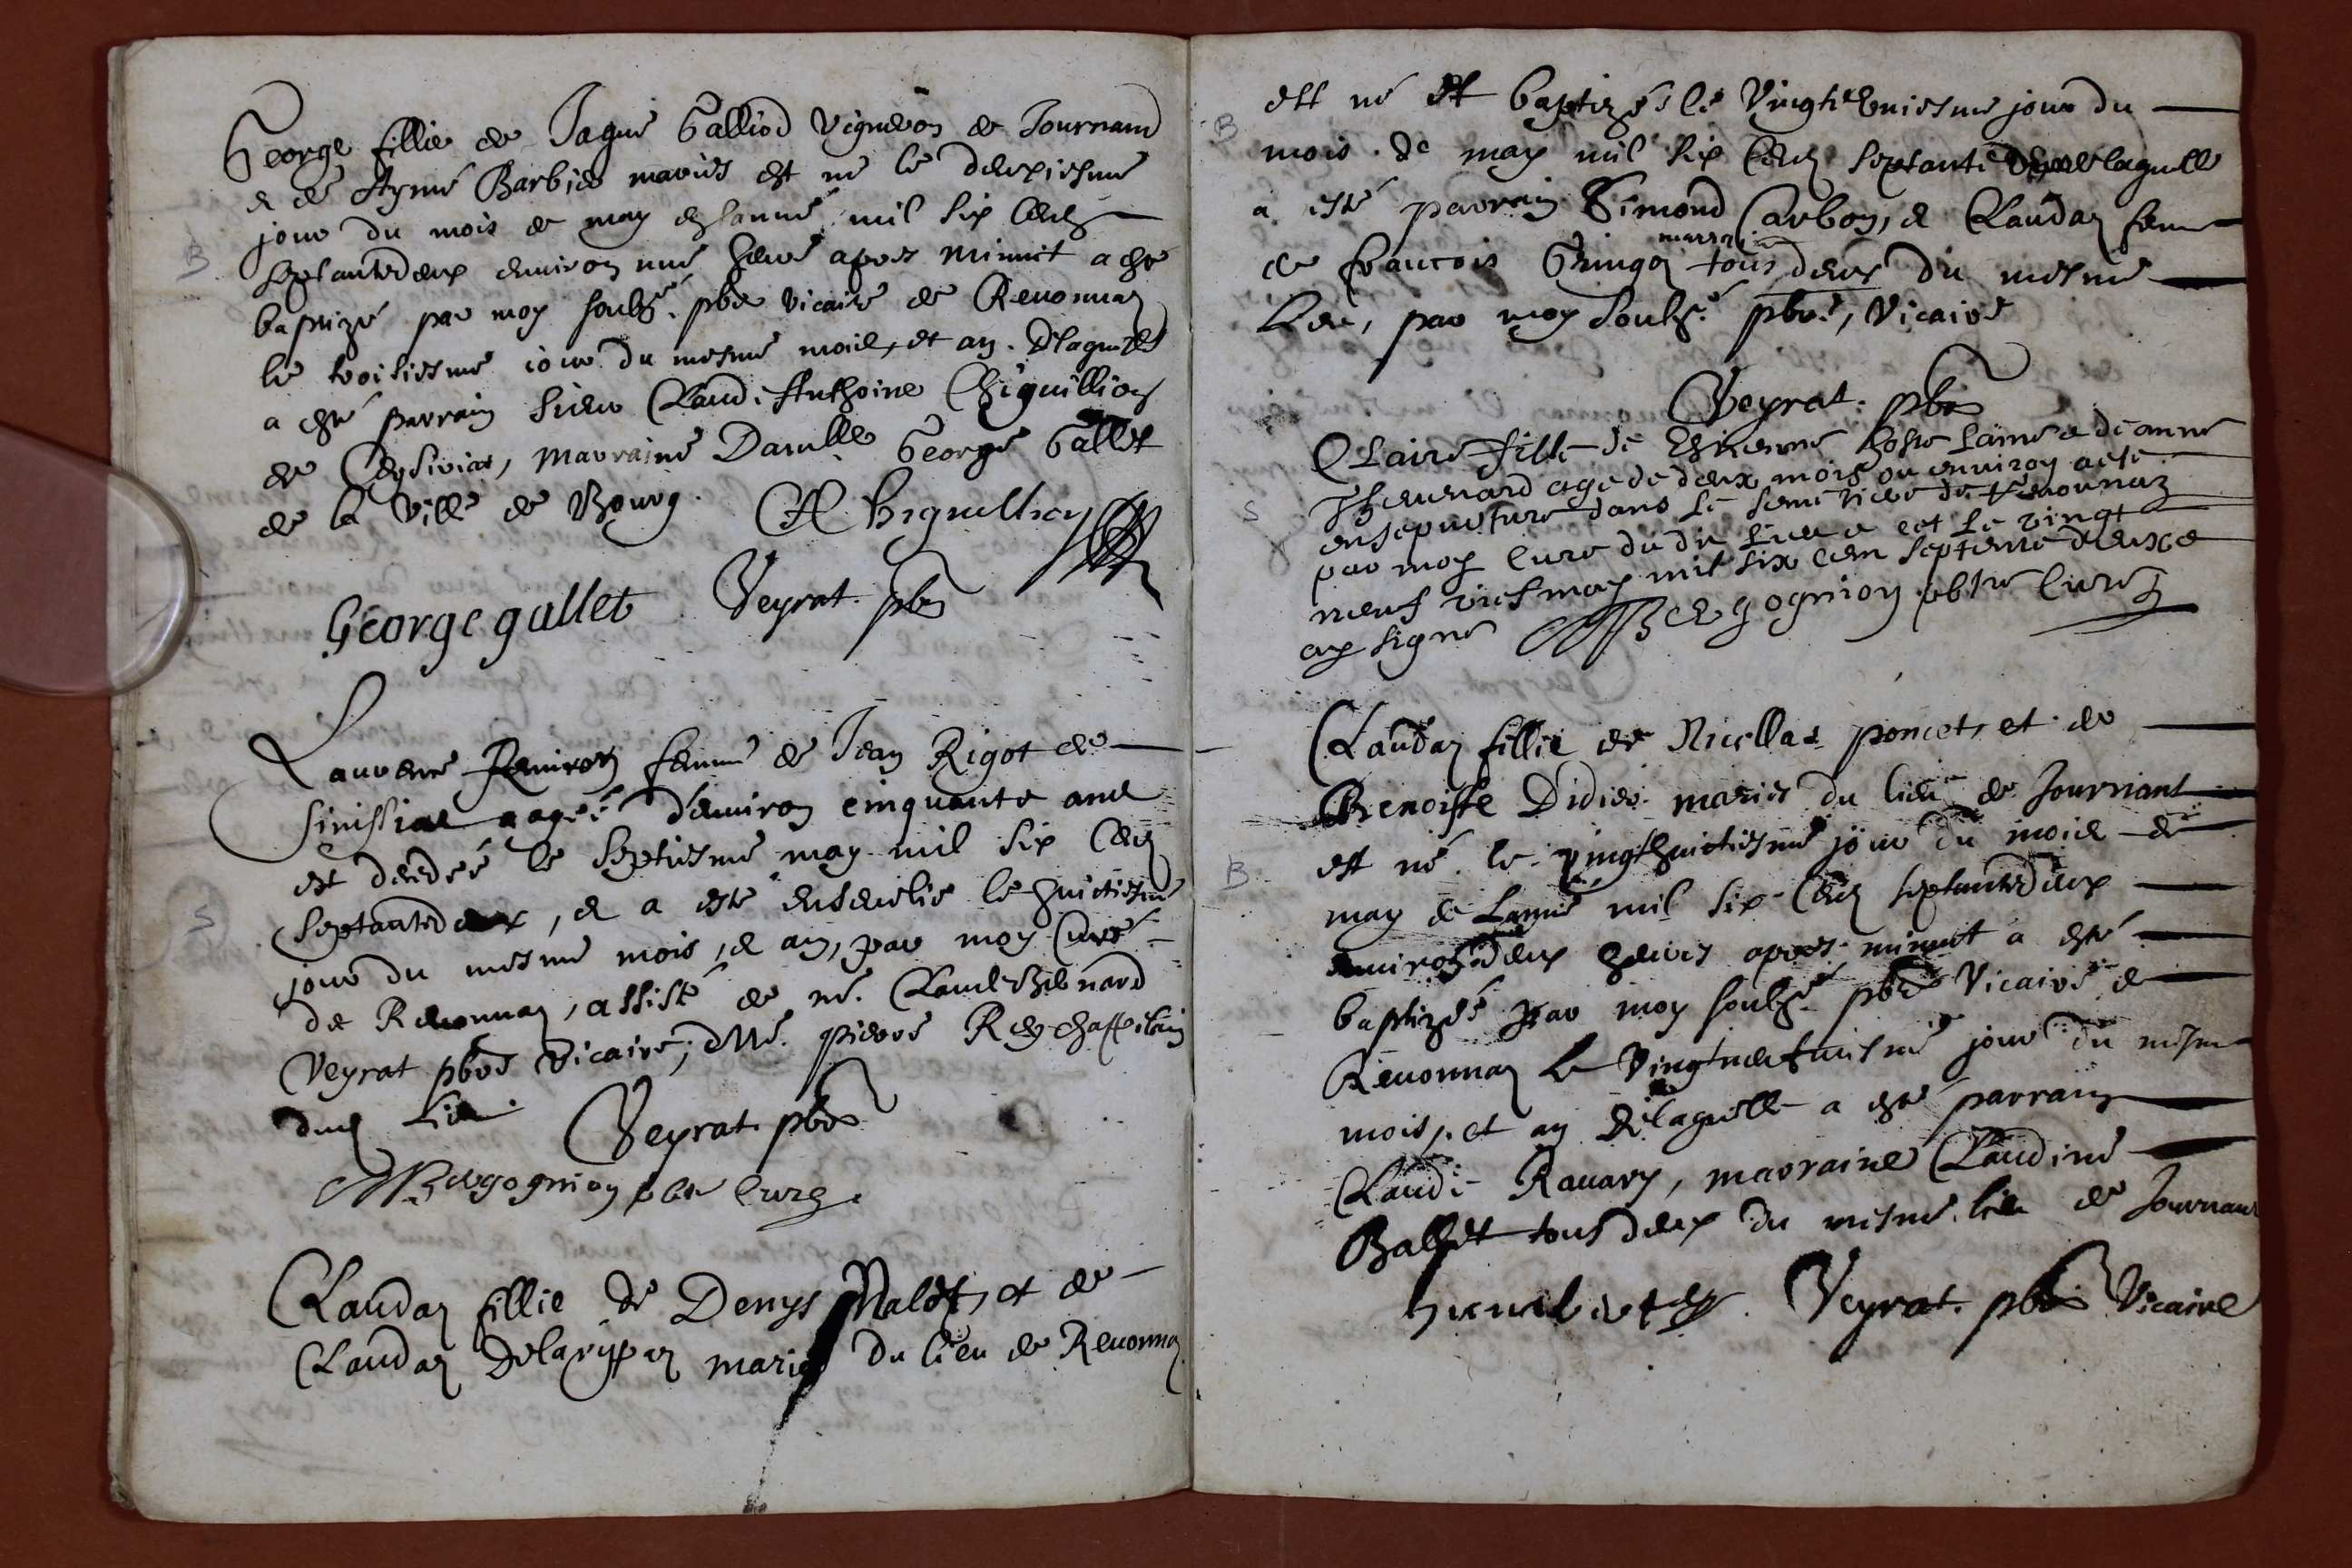 George fillie de Jaque Galliod Vigneron de Journand
et de Aymé Barbier mariés est né le deuxiesme
jour du mois de may en lanné mil six Cens
B
septantedeux environ une heure apres Minuit a esté
baptizé par moy soubsé. pbre vicaire de Reuonnaz
le troisiesme iour du mesme mois, et an. Delaquelle
a esté parrain sieur Claude Anthoine Chiguillion
de Ceysiriat, Marraine Damlle George Gallet
de la Ville de Bourg. CA Chiguillion
George gallet Veyrat. pbre
Laurence femme de Jean Rigot de
sinissiat aagée d'environ cinquante ans
est decedée le septiesme may mil six Cens
S
septantedeux, et a esté ensevelie le huictiesme
jour du mesme mois, et an, par moy Curé
de Reuonnaz, assisté de me. Claude Bernard
Veyrat pbre Vicaire, et Me. pierre Rey chappelain
dud Lieu. Veyrat. pbre
Bergognion pbre Curé.
Claudaz fillie de Denys Maler, et de
Claudaz Delaryppaz mariés du lieu de Reuonnaz
B
est né et baptizés le Vingthuniesme jour du
mois de may mil six Cens septante deux delaquelle
a esté parrain Simond Carbon, et Claudaz femme
marraine
de francois Gringoz tous deux du mesme
Lieu, par moy soubsé. pbre, Vicaire
Veyrat. pbre
Claire fille de Estienne Coste lainé e de anne
Theuenard age de deux mois ou enuiron a esté
S
ensepulture dans le semetiere de Reuonnaz
par moy Cure du dit lieu e cet le vingt
neuf viesme may mil six cent septente deux e
ay signé Bergognion pbtre Curé
Claudaz fillie de Nicollas poncet, et de
Benoiste Didier mariés du lieu de Journant
B
est né le vingthuictiesme jour du mois de
may de Lanné mil six Cens septantedeux
environ deux heures apres minuit a esté
baptizé par moy soubsé. pbre Vicaire de
Reuonnaz le Vingtneufuiesme jour du mesme
mois, et an Delaquelle a esté parrain
Claude Rauary, marraine Claudine
Ballet tous deux du mesme lieu de Journand
humbert Veyrat. pbre Vicaire